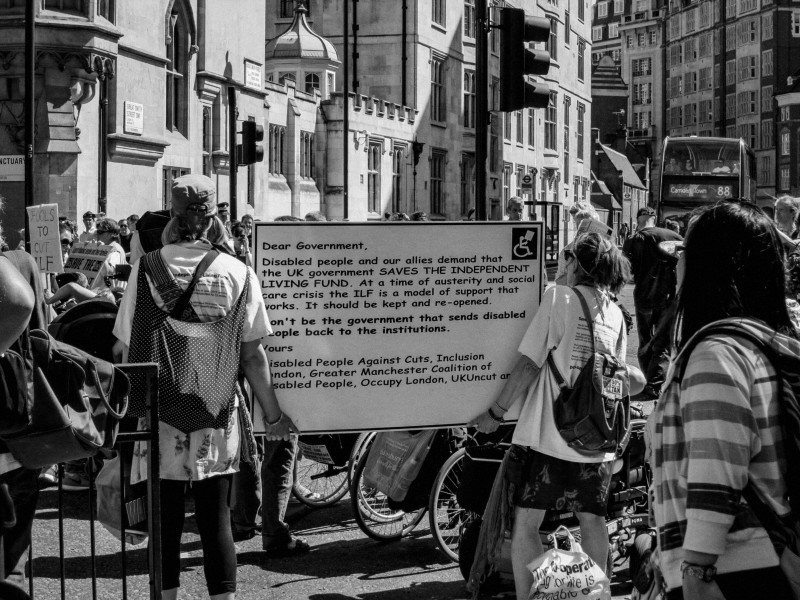 SANCTUARY
FOOLS
TO
CUT
ILF
Camden Town 88
Dear Government,
Disabled people and our allies demand that
the UK government SAVES THE INDEPENDENT
LIVING FUND. At a time of austerity and social
care crisis the ILF is a model of support that
works. It should be kept and re-opened.
on't be the government that sends disabled
eople back to the institutions.
ours
isabled People Against Cuts, Inclusion
ondon, Greater Manchester Coalition of
isabled People, Occupy London, UKUncut an
PUMA
The co-operative
for life is